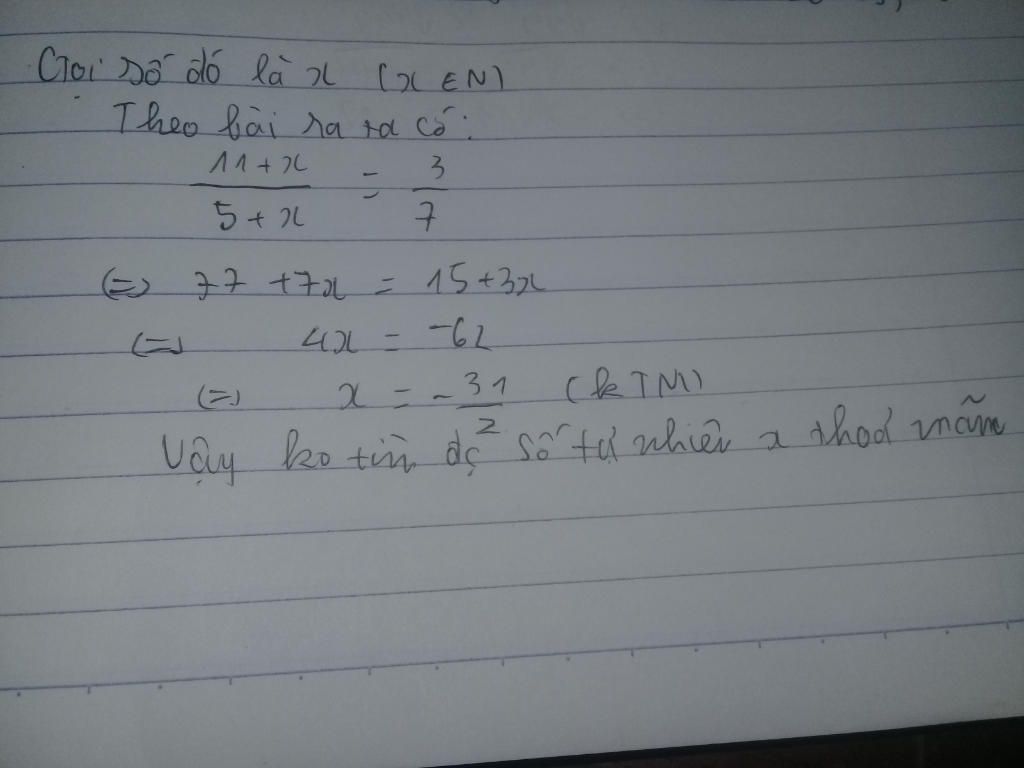 Gọi số đó là x (x ∈ N)
Theo bài ra ta có:
11+x / 5+x = 3/7
(=) 77 + 7x = 15 + 3x
(=) 4x = -62
(=) x = -31/2 (k TM)
Vậy ko tìm đc số tự nhiên x thoả mãn